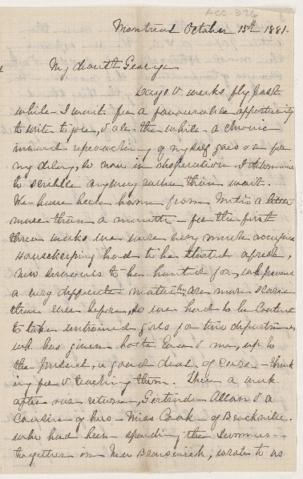 ACC 376
Montreal October 15th 1881.
My dear George
Days & weeks fly past
while I wait for a favourable opportunity
to write to you, & all the while a chronic
inward reproaching of myself goes on for
my delay, so now in desperation I determine
to scribble anyhow rather than wait.
We have been home from Metis a little
more than a month - for the first
three weeks we were very much occupied
housekeeping had to be started afresh,
new servants to be hunted for,
a very difficult matter are more scarce
than ever before, so we had to be content
to take untrained girls for two departments
wh. has given both Eva & me, up to
the present, a good deal of care - think
ing for & teaching them. Then a week
after our return, Gertrude Allan & a
cousin of hers - Miss Cook of Brockville
who had been spending the summer
together in New Brunswick, wrote to us